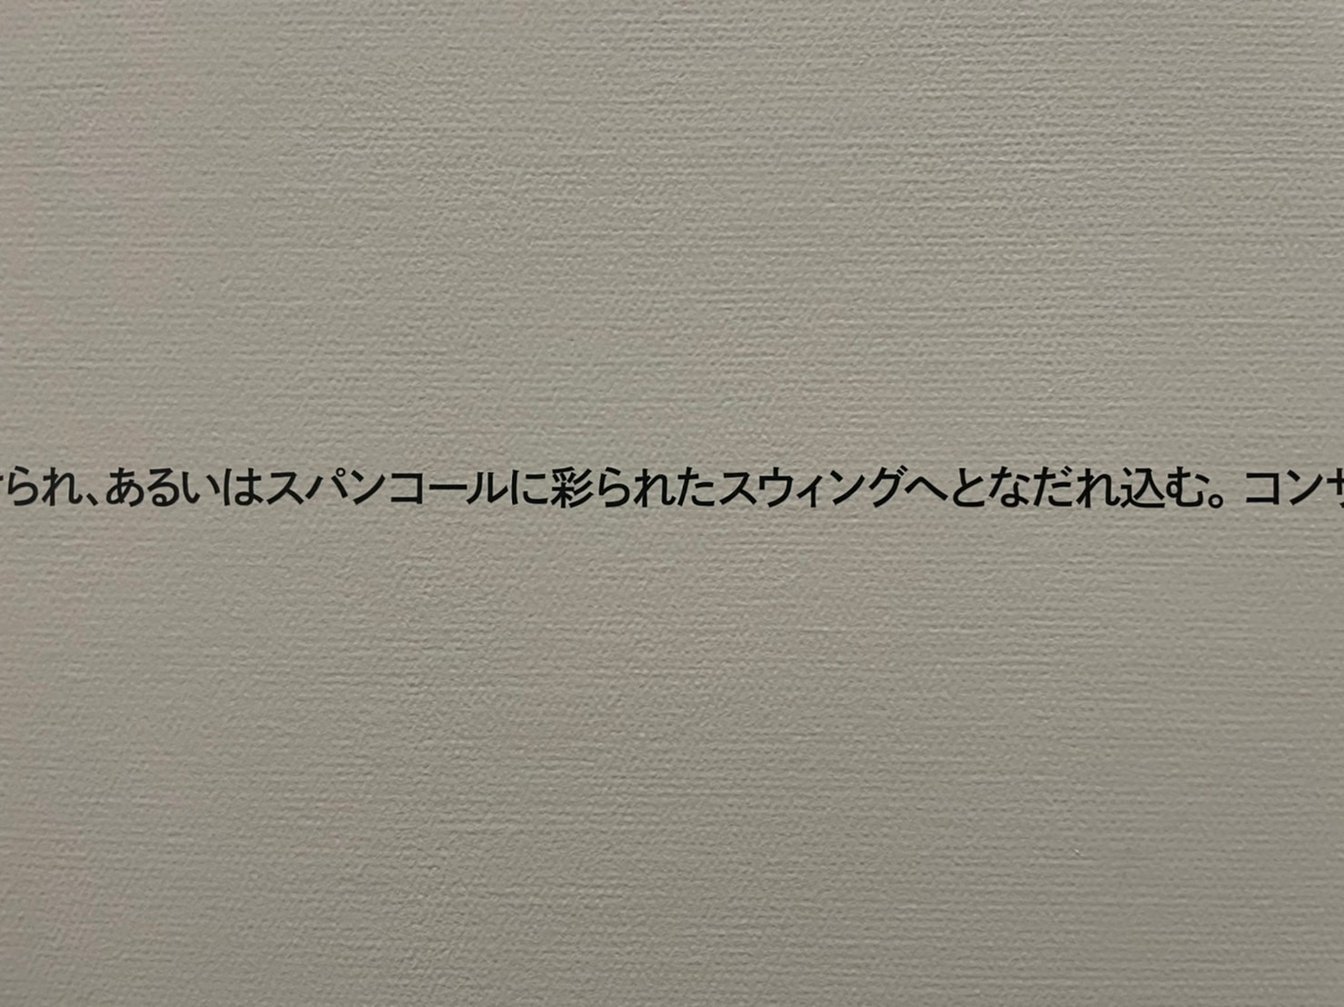 られ、あるいはスパンコールに彩られたスウィングへとなだれ込む。コン